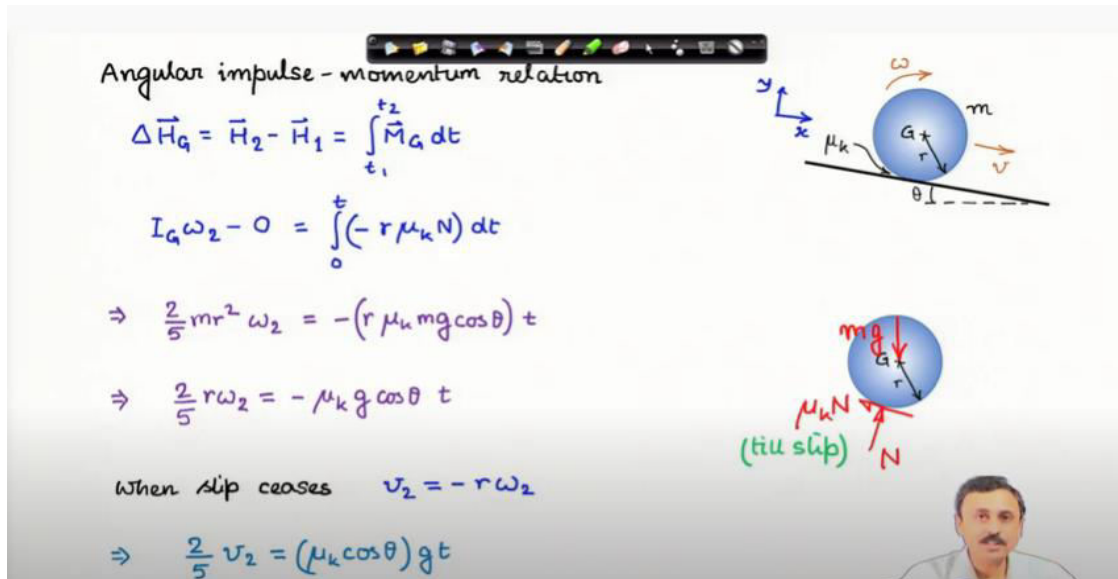 Angular impulse-momentum relation
ΔH⃗_G = H⃗_2 - H⃗_1 = ∫_{t_1}^{t_2} M⃗_G dt
I_G ω_2 - 0 = ∫_0^t (- r μ_k N) dt
⇒ 2/5 mr² ω_2 = -(r μ_k mg cos θ) t
⇒ 2/5 rω_2 = - μ_k g cos θ t
When slip ceases v_2 = - r ω_2
⇒ 2/5 v_2 = (μ_k cos θ) g t
ω
y
x
m
G
r
μ_k
v
θ
mg
G
r
μ_k N
(till slip)
N